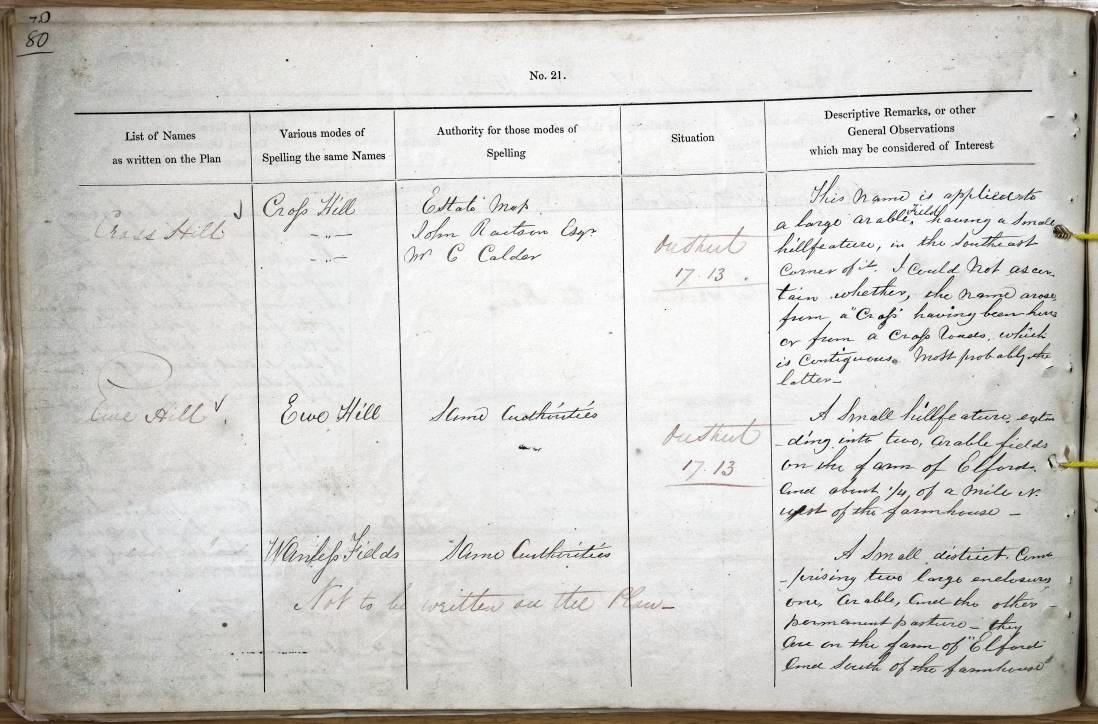 70
80
No. 21.
List of Names
as written on the Plan
Various modes of
Spelling the same Names
Authority for those modes of
Spelling
Situation
Descriptive Remarks, or other
General Observations
which may be considered of Interest
Cross Hill
Cross Hill
Estate Map
John Raitson Esqr
Mr C Calder
On Sheet
17.13
This Name is applied to
a large arable Field, having a small
hillfeature, in the Southeast
corner of it. I could not ascer-
tain whether, the name arose
from a "Cross" having been here
or from a Cross roads, which
is Contiguous. Most probably the
latter
Ewe Hill
Ewe Hill
Same Authorities
On Sheet
17.13
A Small hillfeature, exten
-ding into two, arable fields
on the farm of Elford,
and about 1/4, of a mile N.
west of the farmhouse
Wanless Fields
Same Authorities
Not to be written on the Plan
A Small district Com
-prising two large enclosures
one, arable, and the other
permanent pasture - they
are on the farm of "Elford"
and South of the farmhouse